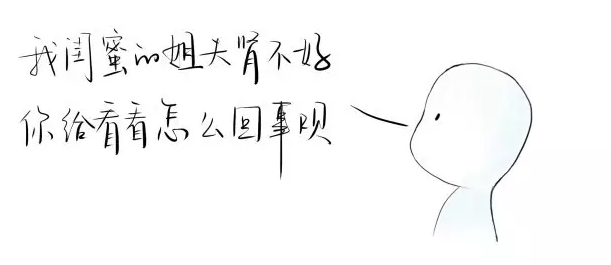 我闺蜜的姐夫肾不好
你给看看怎么回事呗